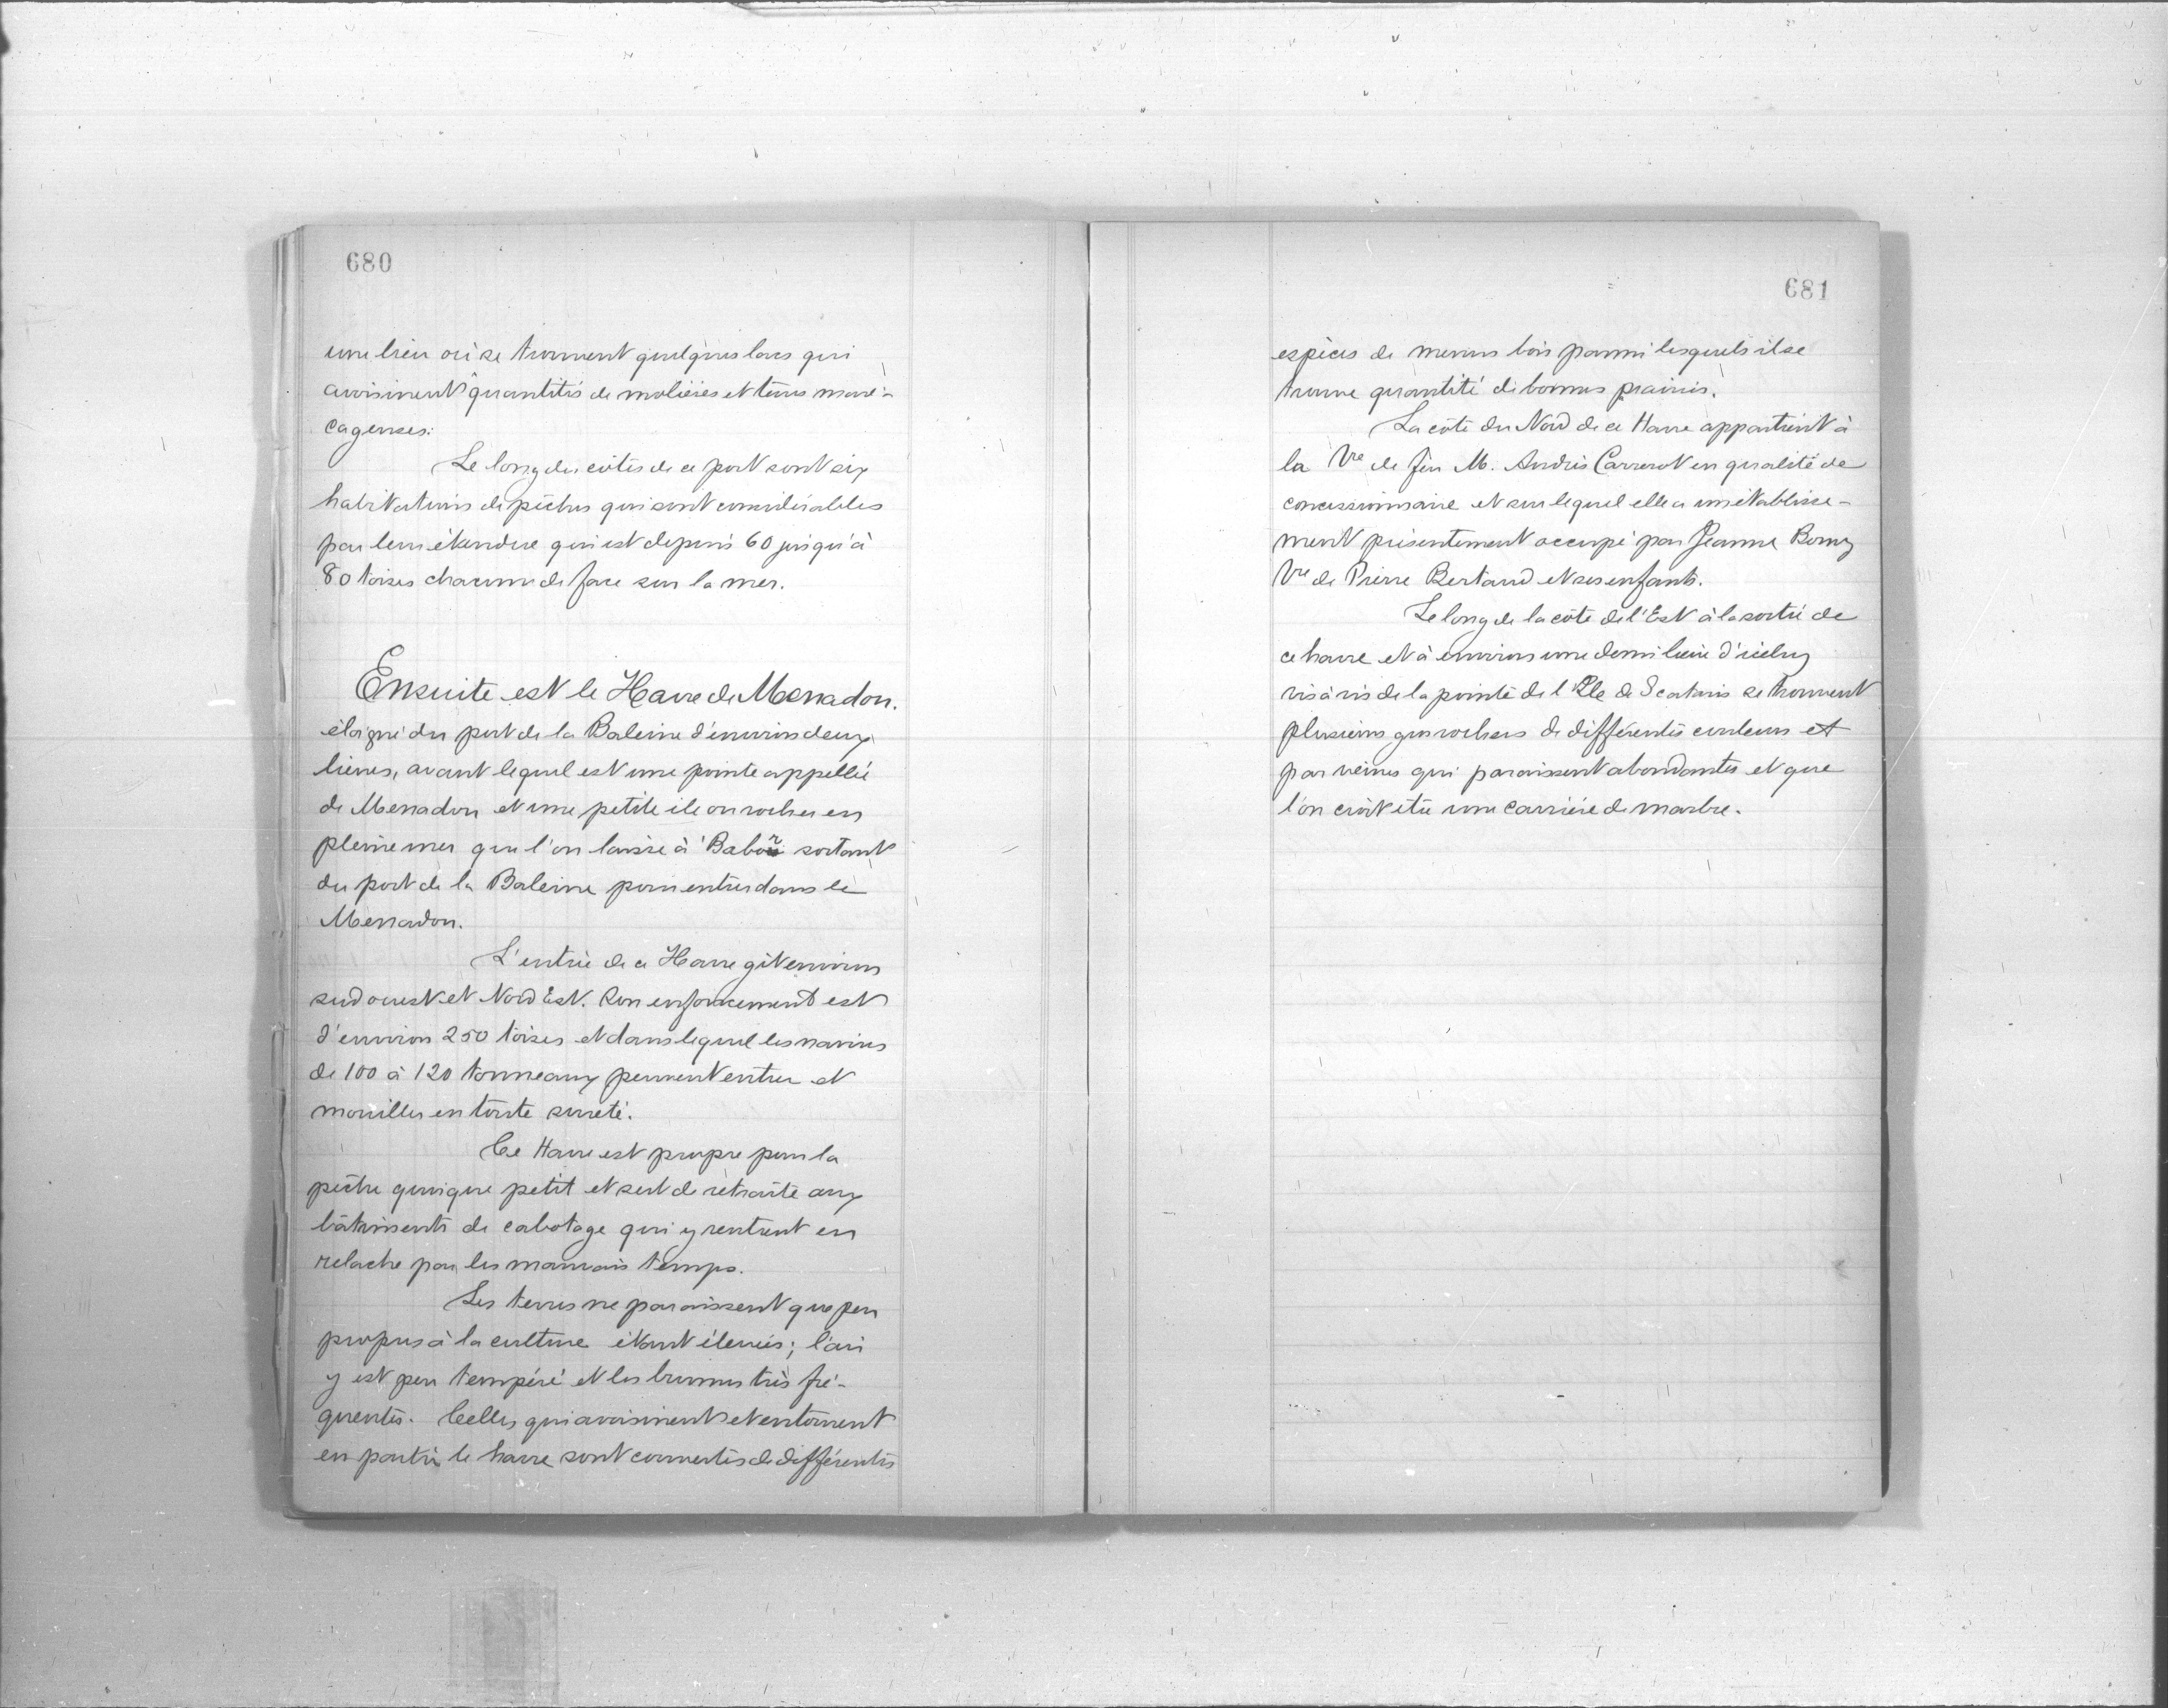 680
une lieu où se trouvent quelques lacs qui
avoisinent quantités de molières et terres maré-
cageuses:
Le long des côtés de ce port sont six
habitations de pêches qui sont considérables
par leur étendue qui est depuis 60 jusqu'à
80 toises chacune de face sur la mer.
Ensuite est le Havre de Menadon.
éloigné du port de la Baleine d'environ deux
lieues, avant lequel est une pointe appellée
de Menadon et une petite ile ou rocher en
pleine mer que l'on laisse à Babor sortant
du port de la Baleine pour entrer dans le
Menadon.
L'entrée de ce Havre gît environ
sud ouest et Nord Est. Son enfoncement est
d'environ 250 toises et dans lequel les navires
de 100 à 120 tonneaux peuvent entrer et
mouiller en toute sureté.
Ce Havre est propre pour la
pêche quoique petit et sert de retraite aux
bâtiments de cabotage qui y rentrent en
relache par les mauvais temps.
Les terres ne paraissent que peu
propres à la culture étant élevées; l'air
y est peu tempéré et les brumes très fré-
quentes. Celles qui avoisinent et entourent
en partie le havre sont couvertes de différentes
681
espèces de menus bois parmi lesquels il se
trouve quantité de bonnes prairies.
La côte du Nord de ce Havre appartient à
la Vve de feu M. André Carrerot en qualité de
concessionnaire et sur lequel elle a un établisse-
ment présentement occupé par Jeanne Borny
Vve de Pierre Bertaud et ses enfants.
Le long de la côte de l'Est à la sortie de
ce havre et à environ une demi lieue d'iceluy
vis à vis de la pointe de l'Ile de Scataris se trouvent
plusieurs gros rochers de différentes couleurs et
par veines qui paraissent abondantes et que
l'on croit être une carrière de marbre.